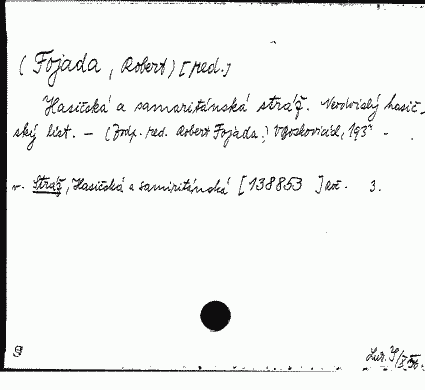 (Fojada, Robert) [red.]
Hasičská a samaritánská stráž. Neodvislý hasič-
ský list. – (Zodp. red. Robert Fojada.) V Boskovicích, 193 - .
v. Stráž, Hasičská a samaritánská [138853 ] roč. 3.
9